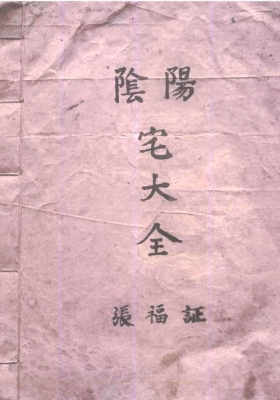 陰陽
宅大全
張福証